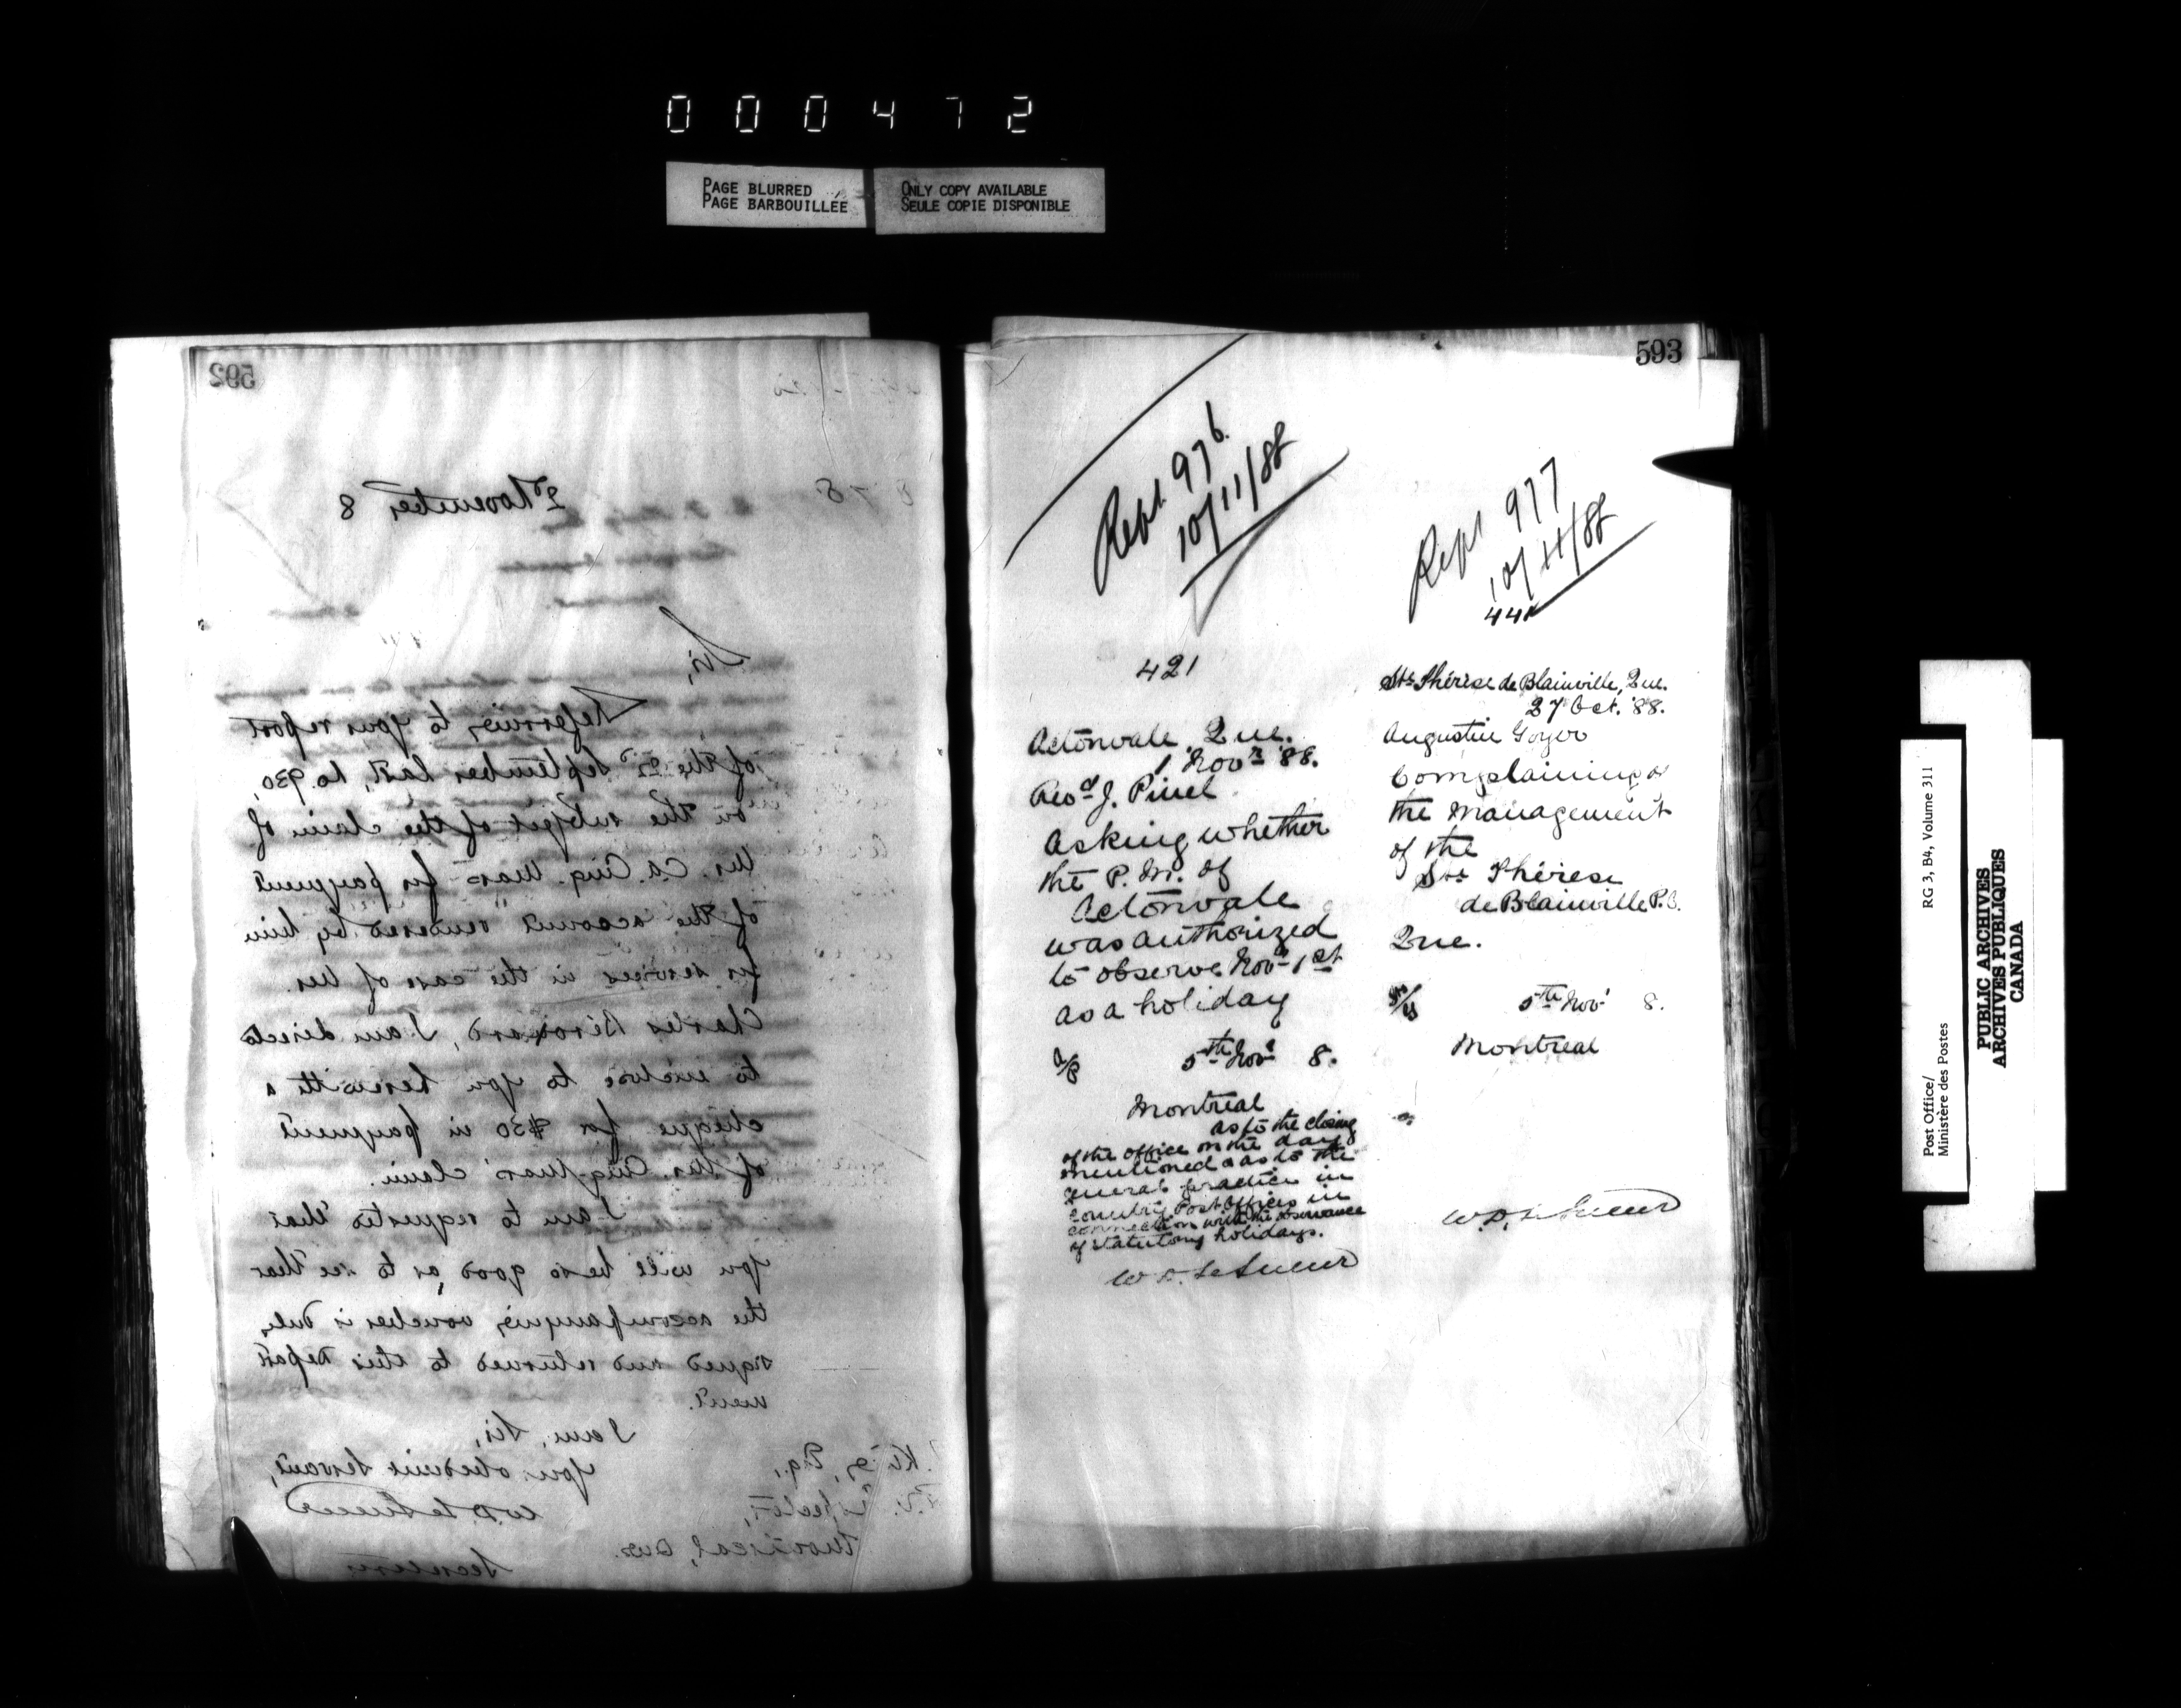 000472
PAGE BLURRED
PAGE BARBOUILLÉE
ONLY COPY AVAILABLE
SEULE COPIE DISPONIBLE
592
2d November 8
Sir,
Referring to your report
of the 22d September last, No. 930,
on the subject of the claim of
Mr. C.A. Cinq-Mars for payment
of the account rendered by him
for services in the case of Mr.
Charles Birouard, I am directed
to enclose to you herewith a
cheque for $30 in payment
of Mr. Cinq-Mars' claim.
I am to request that
you will be so good as to see that
the accompanying voucher is duly
signed and returned to this Depart
ment.
I am, Sir,
Your obedient servant,
W.D. LeSueur
Secretary
King, Esq.,
Inspector,
Montreal, Que.
593
Rept. 976.
10/11/88
421
Actonvale, Que.
1 Novr. '88.
Revd. J. Pinel
Asking whether
the P.M. of
Actonvale
was authorized
to observe Novr 1st
as a holiday
5th Novr 8.
Montreal
as to the closing
of the office on the day
mentioned & as to the
general practice in
country Post Offices in
connection with the observance
of statutory holidays.
W.D. LeSueur
Rept 977
10/11/88
Ste Thérèse de Blainville, Que.
27 Oct. '88.
Augustin Goyer
Complaining of
the management
of the
Ste Thérèse
de Blainville P.O.
Que.
5th Novr 8.
Montreal
W.D. LeSueur
Post Office/
Ministère des Postes
RG 3, B4, Volume 311
PUBLIC ARCHIVES
ARCHIVES PUBLIQUES
CANADA